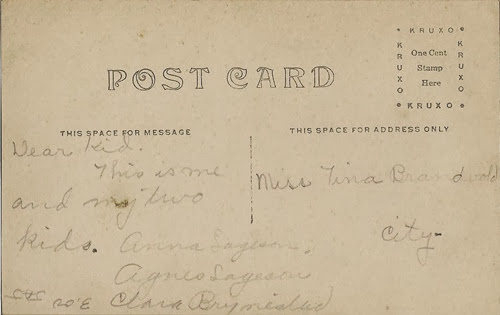 KRUXO
KRUXO
One Cent
Stamp
Here
KRUXO
KRUXO
POST CARD
THIS SPACE FOR MESSAGE
THIS SPACE FOR ADDRESS ONLY
Dear Kid.
This is me
and my two
kids. Anna Sageson.
Agnes Sageson
Clara
Miss Tina Brandvold
City-